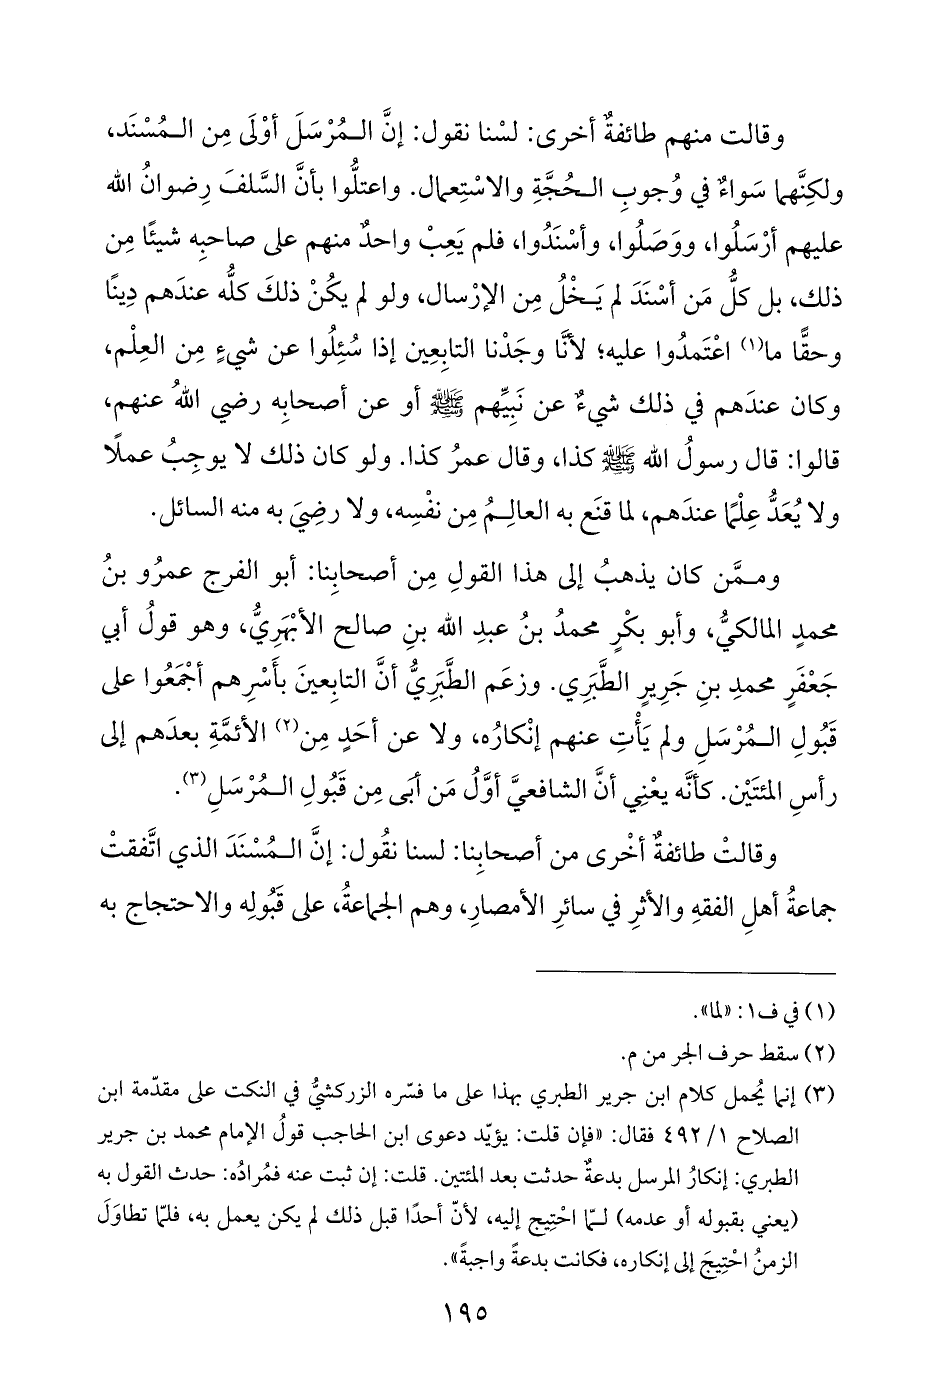 وقالت منهم طائفةٌ أخرى: لسْنا نقول: إنَّ الـمُرْسَلَ أوْلَى مِن الـمُسْنَد،
ولكِنَّهما سَواءٌ في وُجوبِ الـحُجَّةِ والاسْتِعمال. واعتلُّوا بأنَّ السَّلفَ رِضوانُ الله
عليهم أرْسَلُوا، ووَصَلُوا، وأسْنَدُوا، فلم يَعِبْ واحدٌ منهم على صاحبِه شيئًا مِن
ذلك، بل كلُّ مَن أسْنَدَ لم يَـخْلُ مِن الإرْسال، ولو لم يكُنْ ذلكَ كلُّه عندَهم دِينًا
وحقًّا ما(١) اعْتَمدُوا عليه؛ لأنَّا وجَدْنا التابِعِين إذا سُئِلُوا عن شيءٍ مِن العِلْم،
وكان عندَهم في ذلك شيءٌ عن نَبِيِّهم ﷺ أو عن أصحابِه رضي اللهُ عنهم،
قالوا: قال رسولُ الله ﷺ كذا، وقال عمرُ كذا. ولو كان ذلك لا يوجِبُ عملًا
ولا يُعَدُّ عِلْمًا عندَهم، لما قنَع به العالِـمُ مِن نفْسِه، ولا رضِيَ به منه السائل.
ومـمَّن كان يذهبُ إلى هذا القولِ مِن أصحابِنا: أبو الفرج عمرُو بنُ
محمدٍ المالكيُّ، وأبو بكْرٍ محمدُ بنُ عبدِ الله بنِ صالح الأبْهَرِيُّ، وهو قولُ أبي
جَعْفَرٍ محمدِ بنِ جَرِيرٍ الطَّبَرِي. وزعَم الطَّبَرِيُّ أنَّ التابِعينَ بأَسْرِهم أجْمَعُوا على
قَبُولِ الـمُرْسَلِ ولم يَأْتِ عنهم إنْكارُه، ولا عن أحَدٍ مِن(٢) الأئمَّةِ بعدَهم إلى
رأسِ المئتَيْن. كأنَّه يعْنِي أنَّ الشافعيَّ أوَّلُ مَن أبَى مِن قَبُولِ الـمُرْسَلِ(٣).
وقالتْ طائفةٌ أخْرى من أصحابِنا: لسنا نقُول: إنَّ الـمُسْنَدَ الذي اتَّفقتْ
جماعةُ أهلِ الفقهِ والأثرِ في سائرِ الأمصارِ، وهم الجماعةُ، على قَبُولِه والاحتجاج به
(١) في ف١: «لما».
(٢) سقط حرف الجر من م.
(٣) إنما يُحمل كلام ابن جرير الطبري بهذا على ما فسّره الزركشيُّ في النكت على مقدّمة ابن
الصلاح ١/ ٤٩٢ فقال: «فإن قلت: يؤيّد دعوى ابن الحاجب قولُ الإمام محمد بن جرير
الطبري: إنكارُ المرسل بدعةٌ حدثت بعد المئتين. قلت: إن ثبت عنه فمُرادُه: حدث القول به
(يعني بقبوله أو عدمه) لـمّا احْتِيج إليه، لأنّ أحدًا قبل ذلك لم يكن يعمل به، فلمّا تطاوَلَ
الزمنُ احْتِيجَ إلى إنكاره، فكانت بدعةً واجبةً».
١٩٥